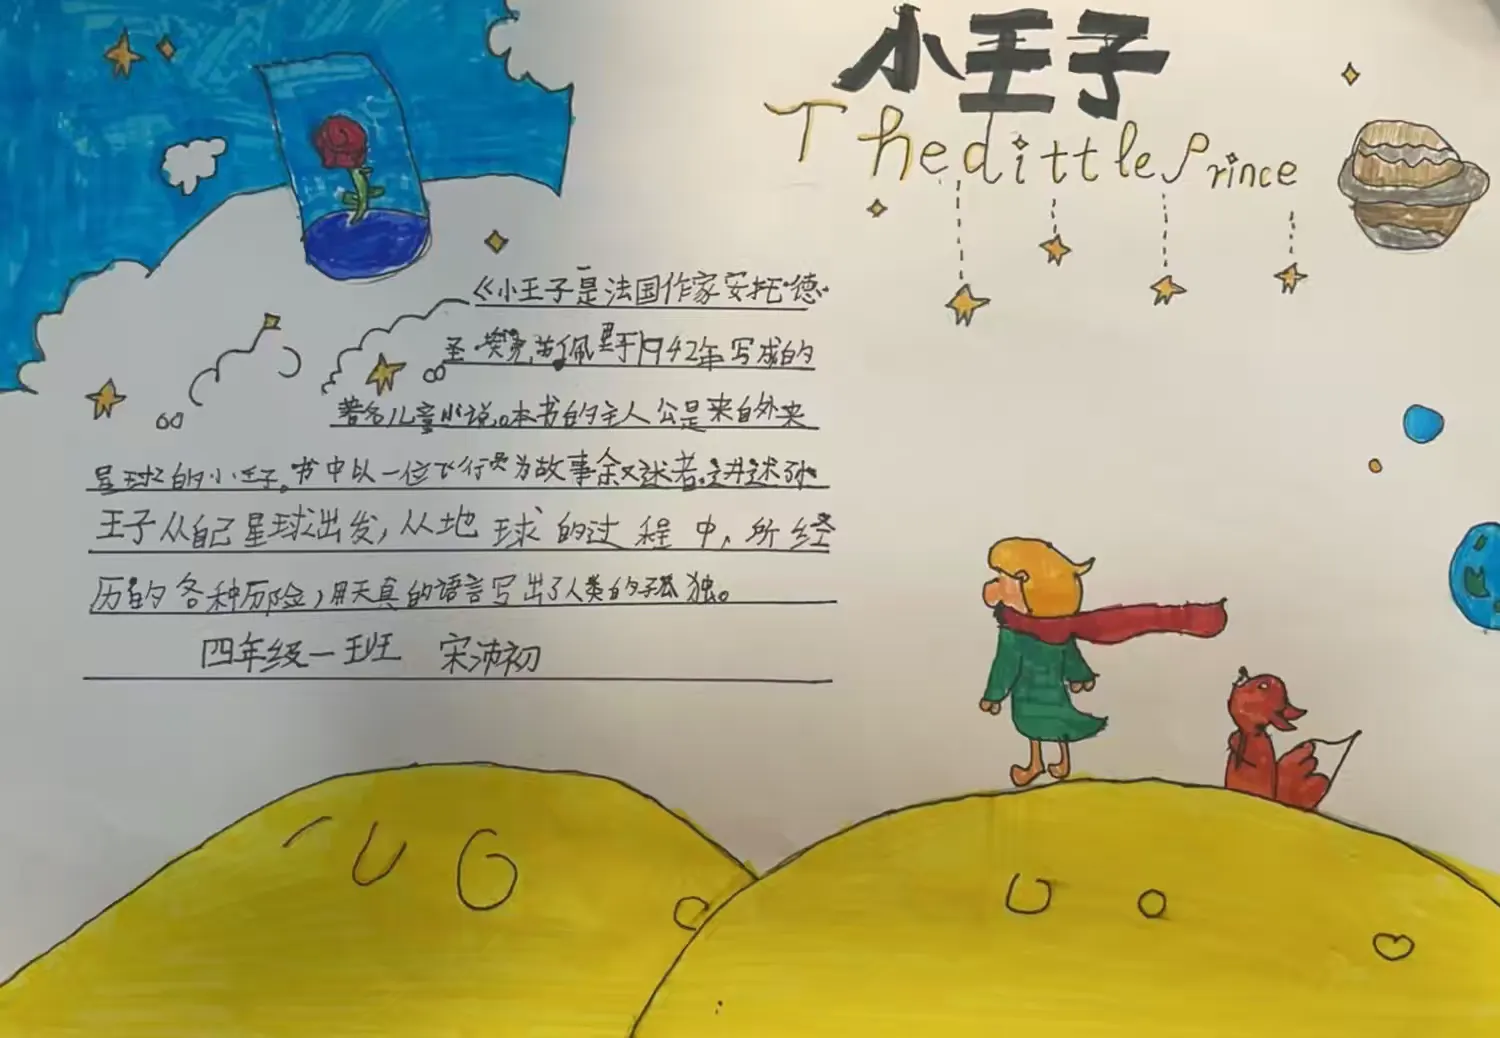 小王子
The dittle Prince
《小王子是法国作家安托·德·
圣·埃克苏佩里于1942年写成的
著名儿童小说。本书的主人公是来自外夹
星球的小王子。书中以一位飞行员为故事叙述者,讲述了小
王子从自己星球出发,从地球的过程中,所经
历的各种历险,用天真的语言写出了人类的孤独。
四年级一班 宋沛初